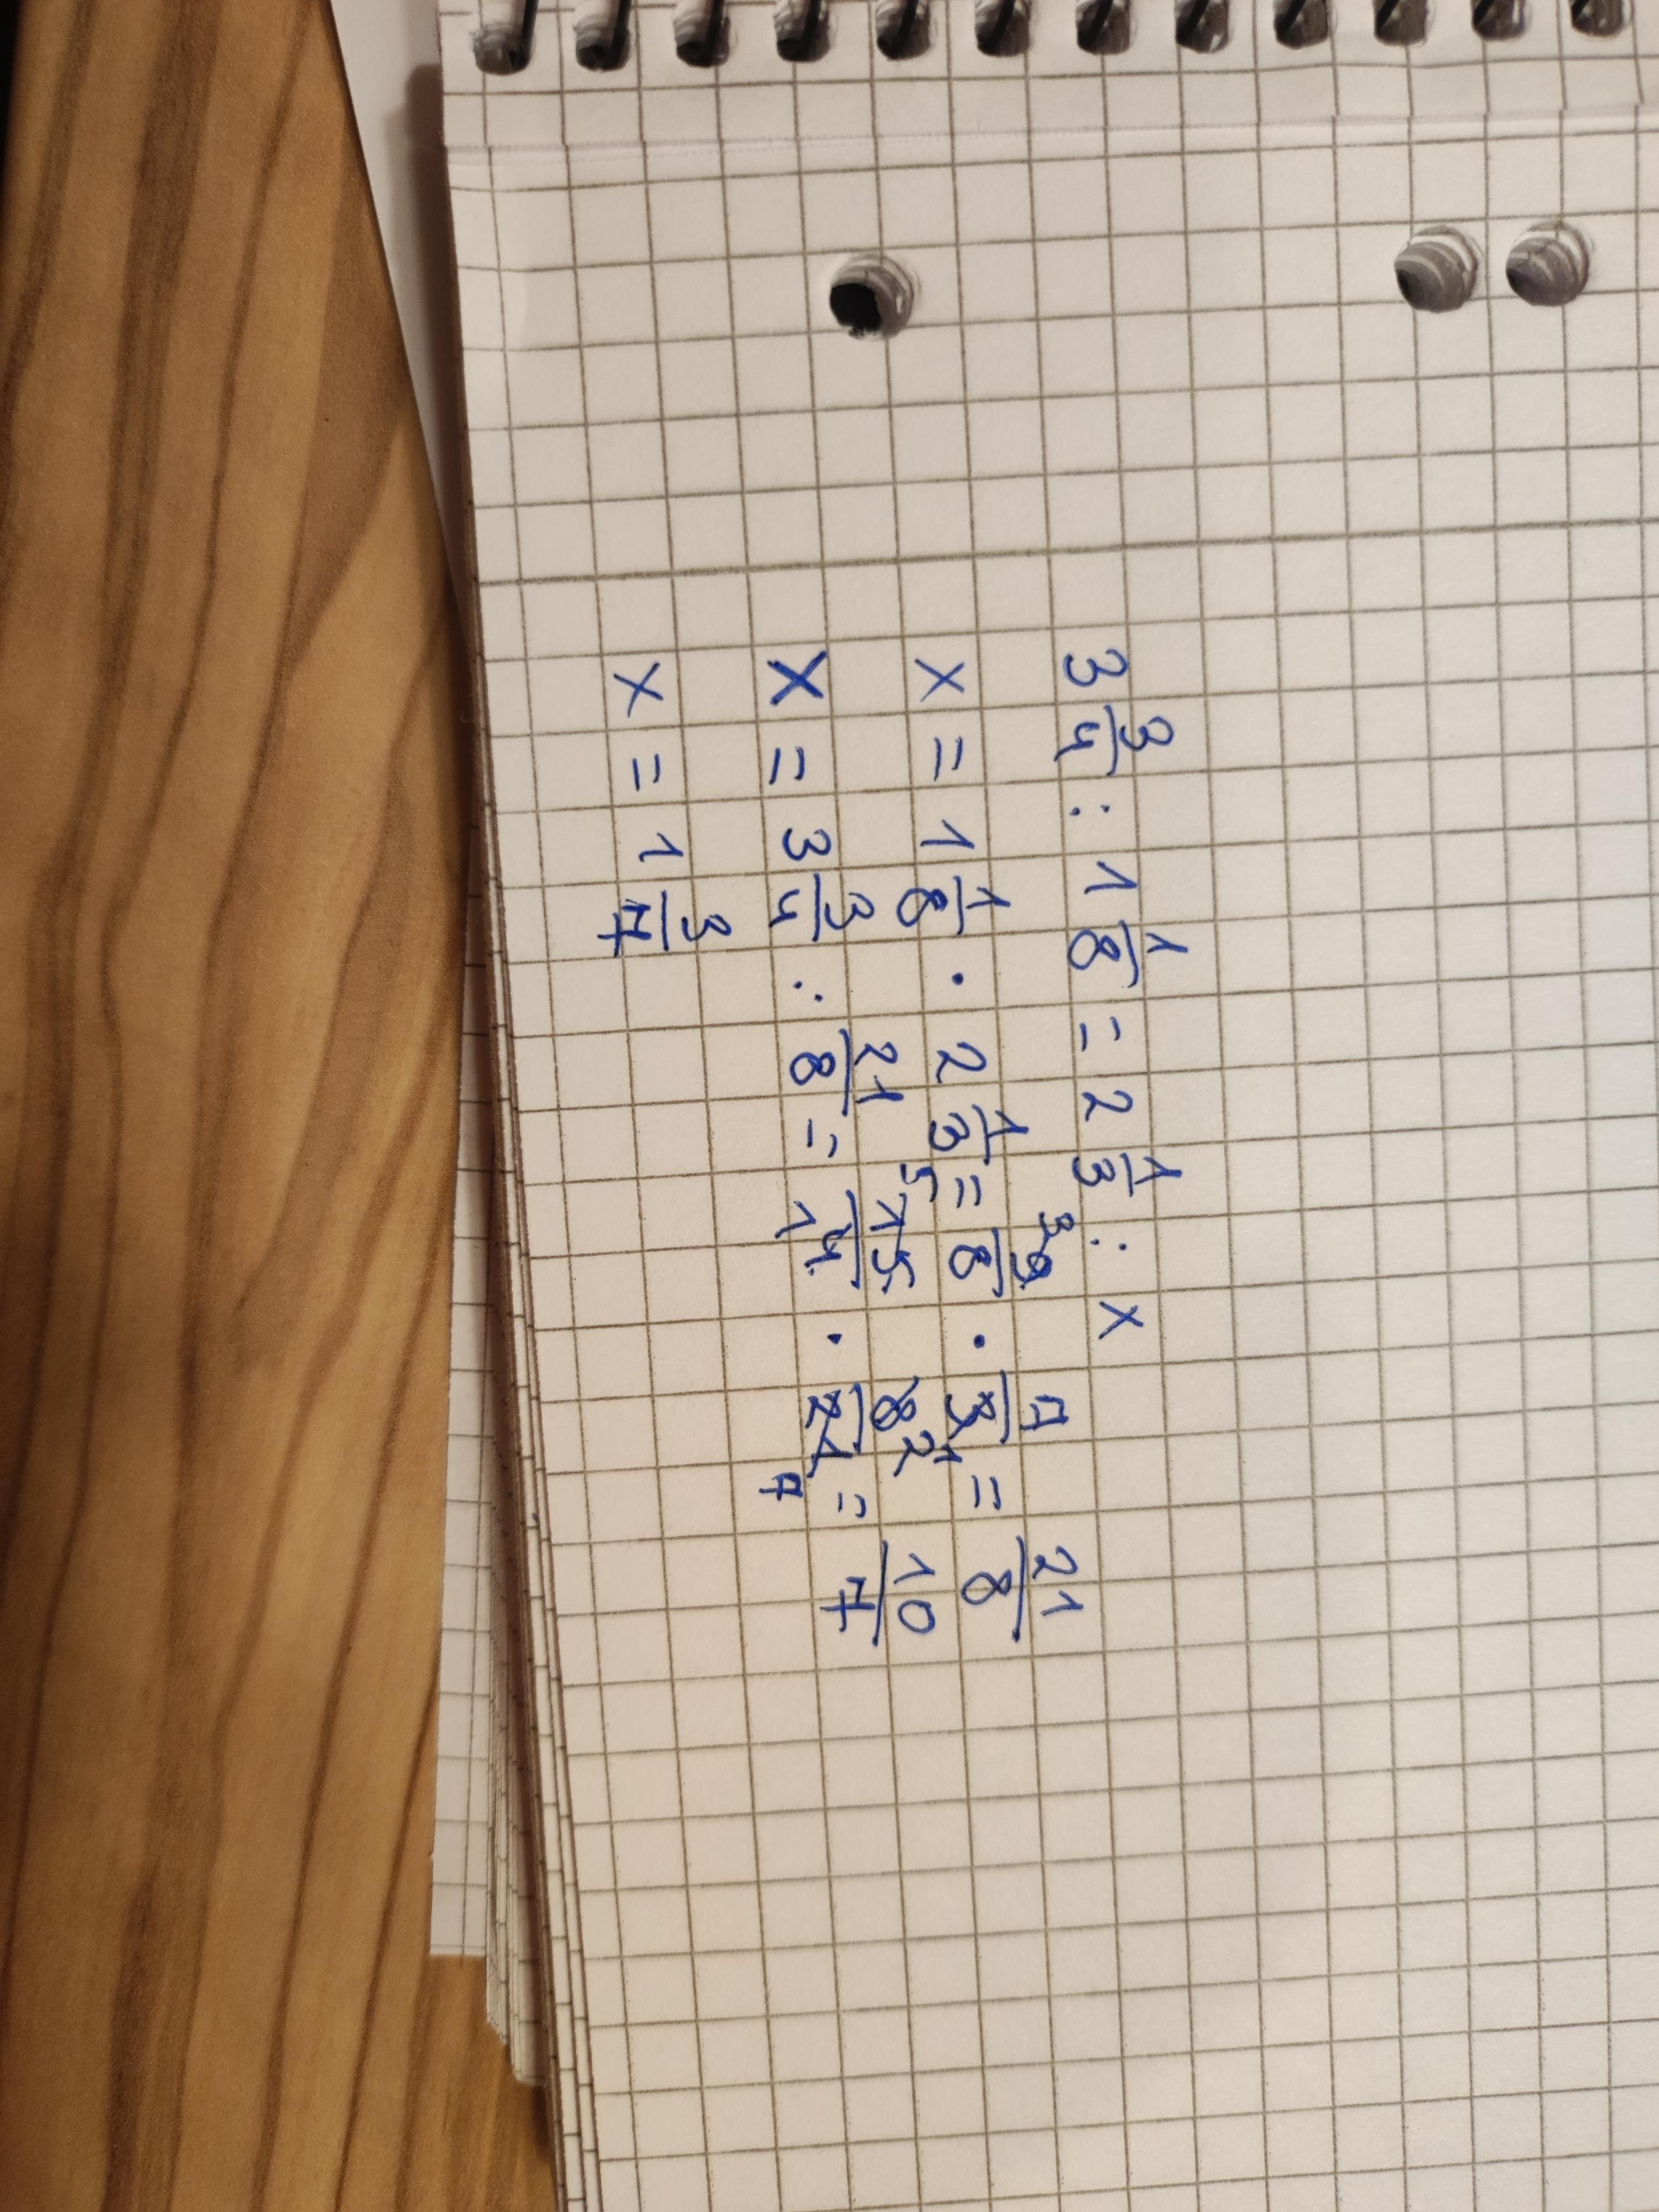 3 3/4 : 1 1/8 = 2 1/3 : x
x = 1 1/8 · 2 1/3 = 9/8 3 · 7/3 1 = 21/8
x = 3 3/4 : 21/8 = 5 15/4 1 · 8/21 2 7 = 10/7
x = 1 3/7